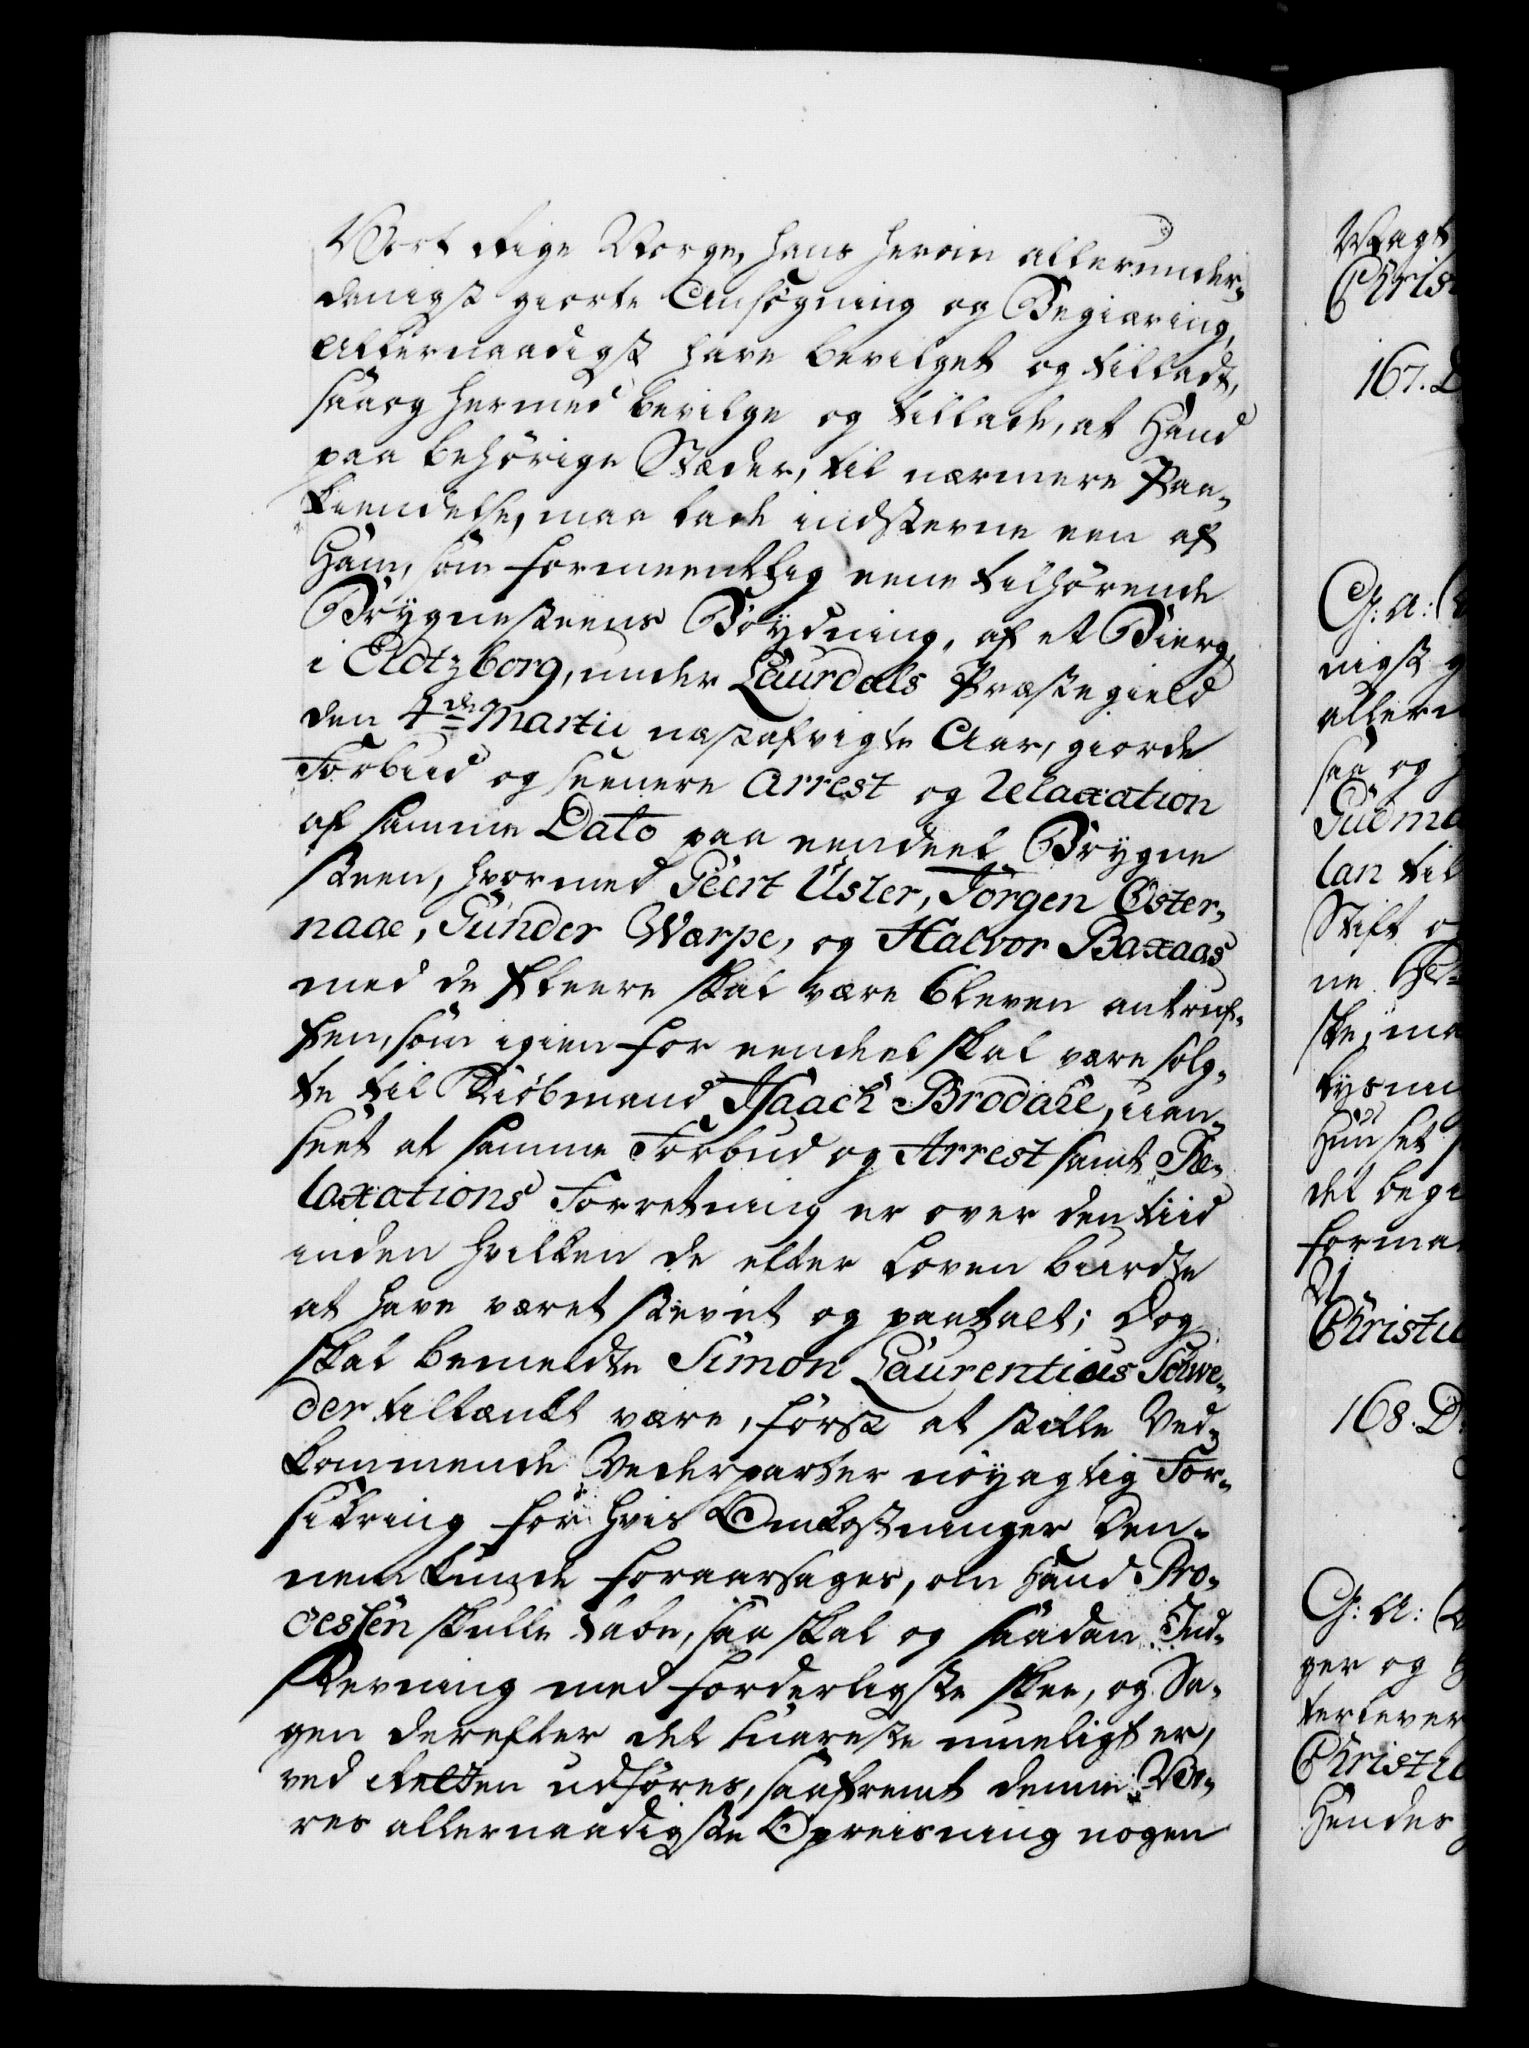 Vort Rige Norge, hans herom allerunder-
danigst giorte Ansøgning og Begiæring,
allernaadigst have bevilget og tilladt,
saa og hermed bevilge og tillade, at Hand
paa behørige Stæder, til nærmere Paa-
kiendelse, maa lade indstevne een af
Ham, som formeentlig eene tilhørende
Brÿgnesteens Brÿdning, af et Bierg,
i Eldtzborg, under Laurdals Præstegield
den 4de Martii næstafvigte Aar, giorde
Forbud og seenere Arrest og Relaxation
af samme Dato paa eendeel Brÿgne
steen, hvormed Geert Uster, Jørgen Øster-
naae, Gunder Wærpe, og Halvor Baxaas
med de fleere skal være bleven antruf-
fen, som igien for eendeel skal være solg-
te til Kiøbmand Isaach Brodahl, uan-
seet at samme Forbud og Arrest samt Re-
laxations Forretning er over den tiid
inden hvilken de efter Loven burdte
at have været stevnt og paatalt; Dog
skal bemeldte Simon Laurentius Schwe-
der tiltænkt være, først at stille Ved-
kommende Vederparter nøyagtig For-
sikring for hvis Omkostninger den-
nem kunde foraarsages, om Hand Pro-
cessen skulle tabe, saa skal og saadan Ind-
stevning med forderligste skee, og Sa-
gen derefter det snareste mueligt er,
ved Retten udføres, saafremt denne Vo-
res allernaadigste Opreisning nogen
Christ
167. D
G: a:
nigst
allern
saa og
Gudm
lan til
Stift o
ne
ske, ma
lysni
det begi
forma
Christi
168. D
G: A:
ger og
terlever
Christi
Hendes